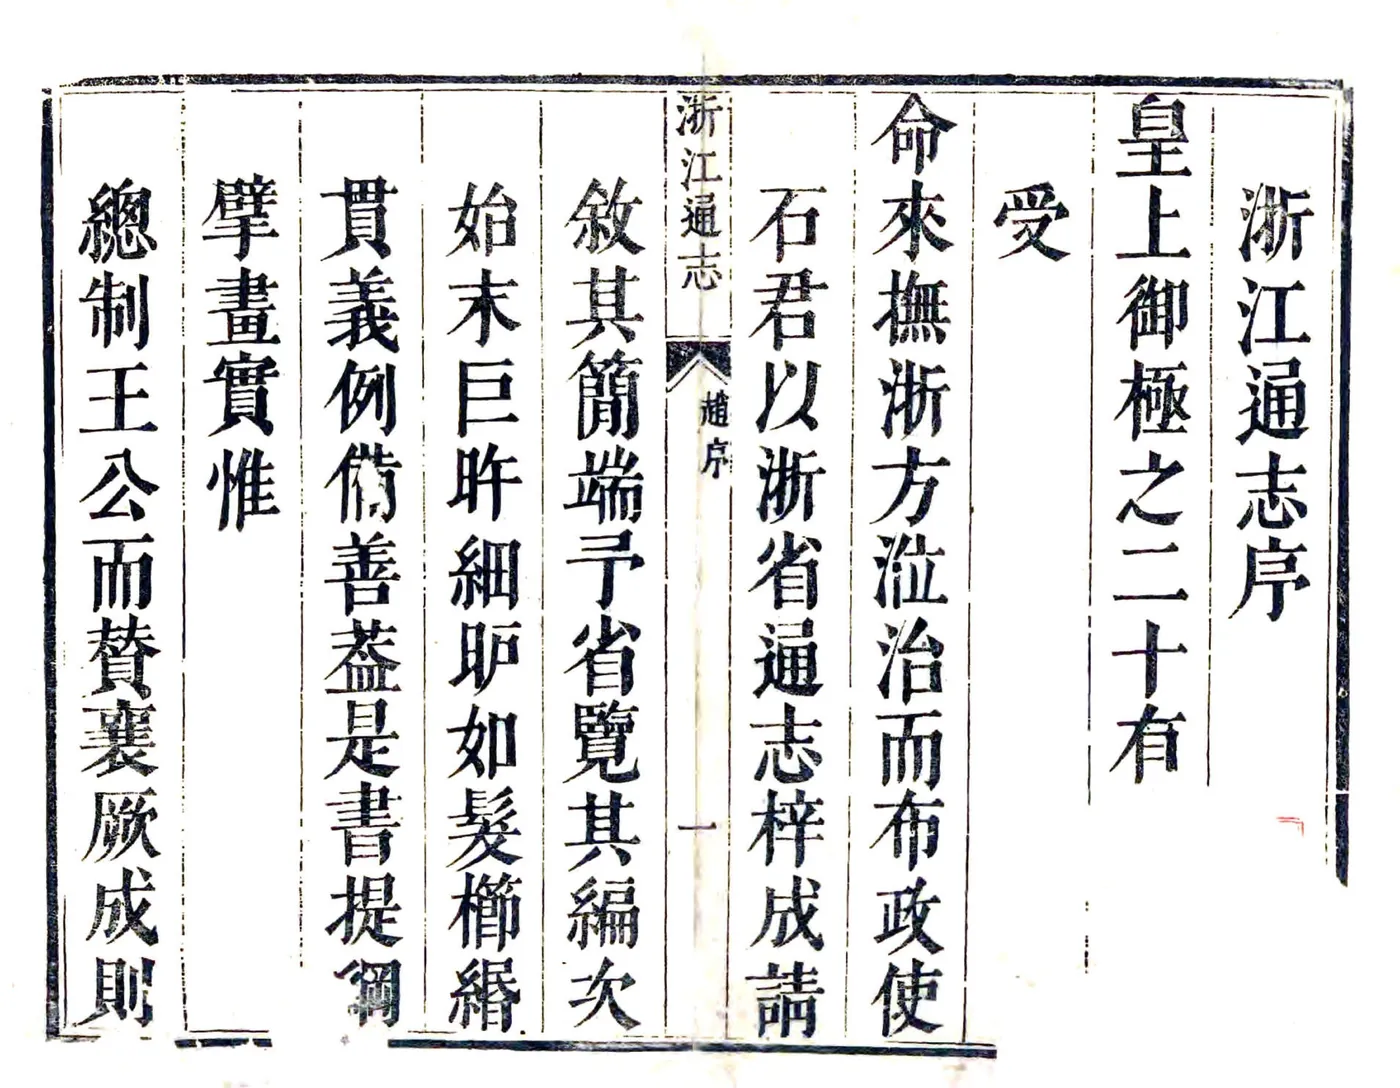 浙江通志序
皇上御極之二十有
受
命來撫浙方涖治而布政使
石君以浙省通志梓成請
浙江通志
趙序
一
敘其簡端予省覽其編次
始末巨昈細昈如髮櫛緡
貫義例備善葢是書提綱
擘畫實惟
總制王公而贊襄厥成則